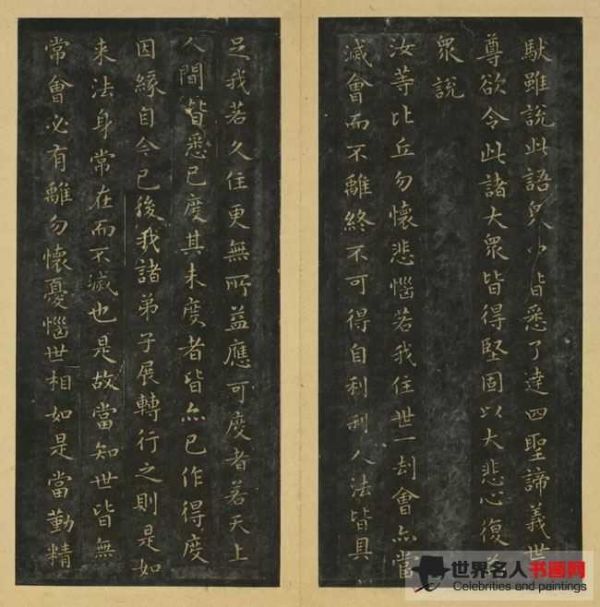 馱雖說此語衆中皆悉了達四聖諦義世
尊欲令此諸大衆皆得堅固以大悲心復
衆說
汝等比丘勿懷悲惱若我住世一劫會亦當
滅會而不離終不可得自利利人法皆具
足我若久住更無所益應可度者若天上
人間皆悉已度其未度者皆亦已作得度
因緣自今已後我諸弟子展轉行之則是如
来法身常在而不滅也是故當知世皆無
常會必有離勿懷憂惱世相如是當勤精
世界名人书画网
Celebrities and paintings